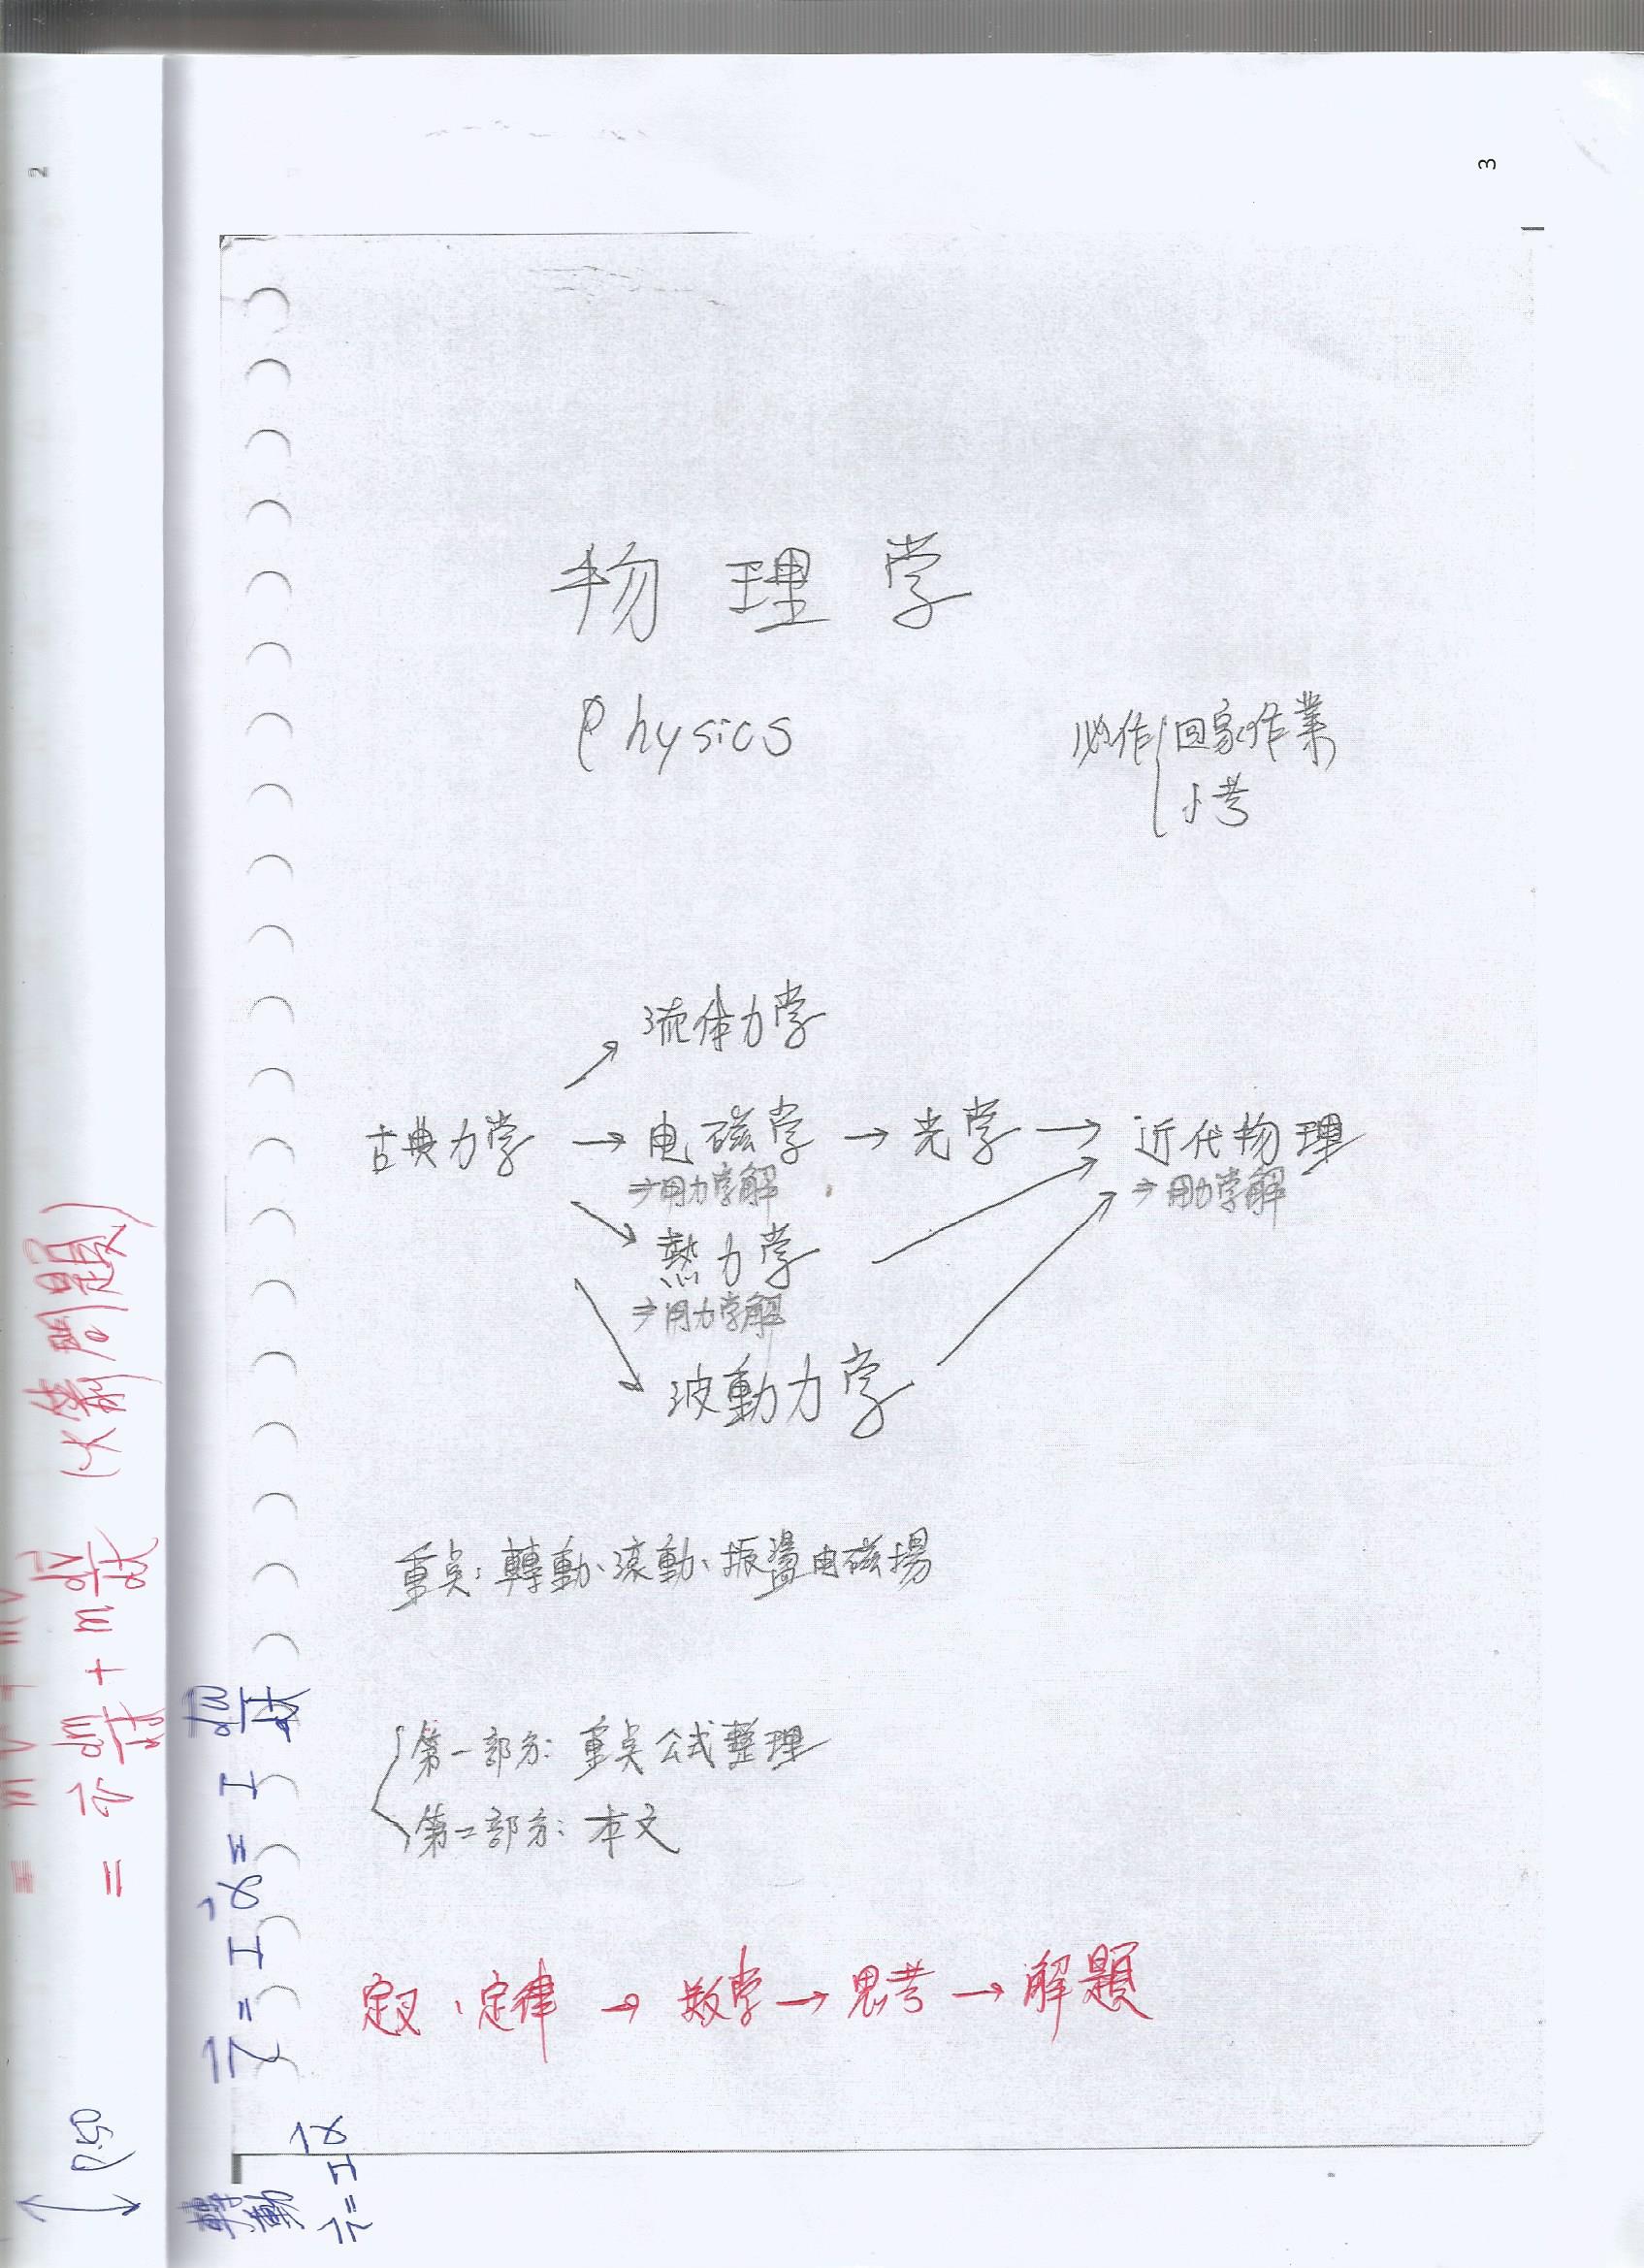 2
3
物理学
Physics
必作 回家作業
小考
流体力学
古典力学 → 电磁学 → 光学 → 近代物理
⇒用力学解
⇒用力学解
熱力学
⇒用力学解
波動力学
重点:轉動、滾動、振盪电磁場
第一部分:重点公式整理
第二部分:本文
定义、定律 → 数学 → 思考 → 解題
= v⃗ dm/dt + m dv⃗/dt (火箭問題)
P.50
τ⃗ = Iα⃗ = I dω/dt
轉動
τ⃗ = Iα⃗